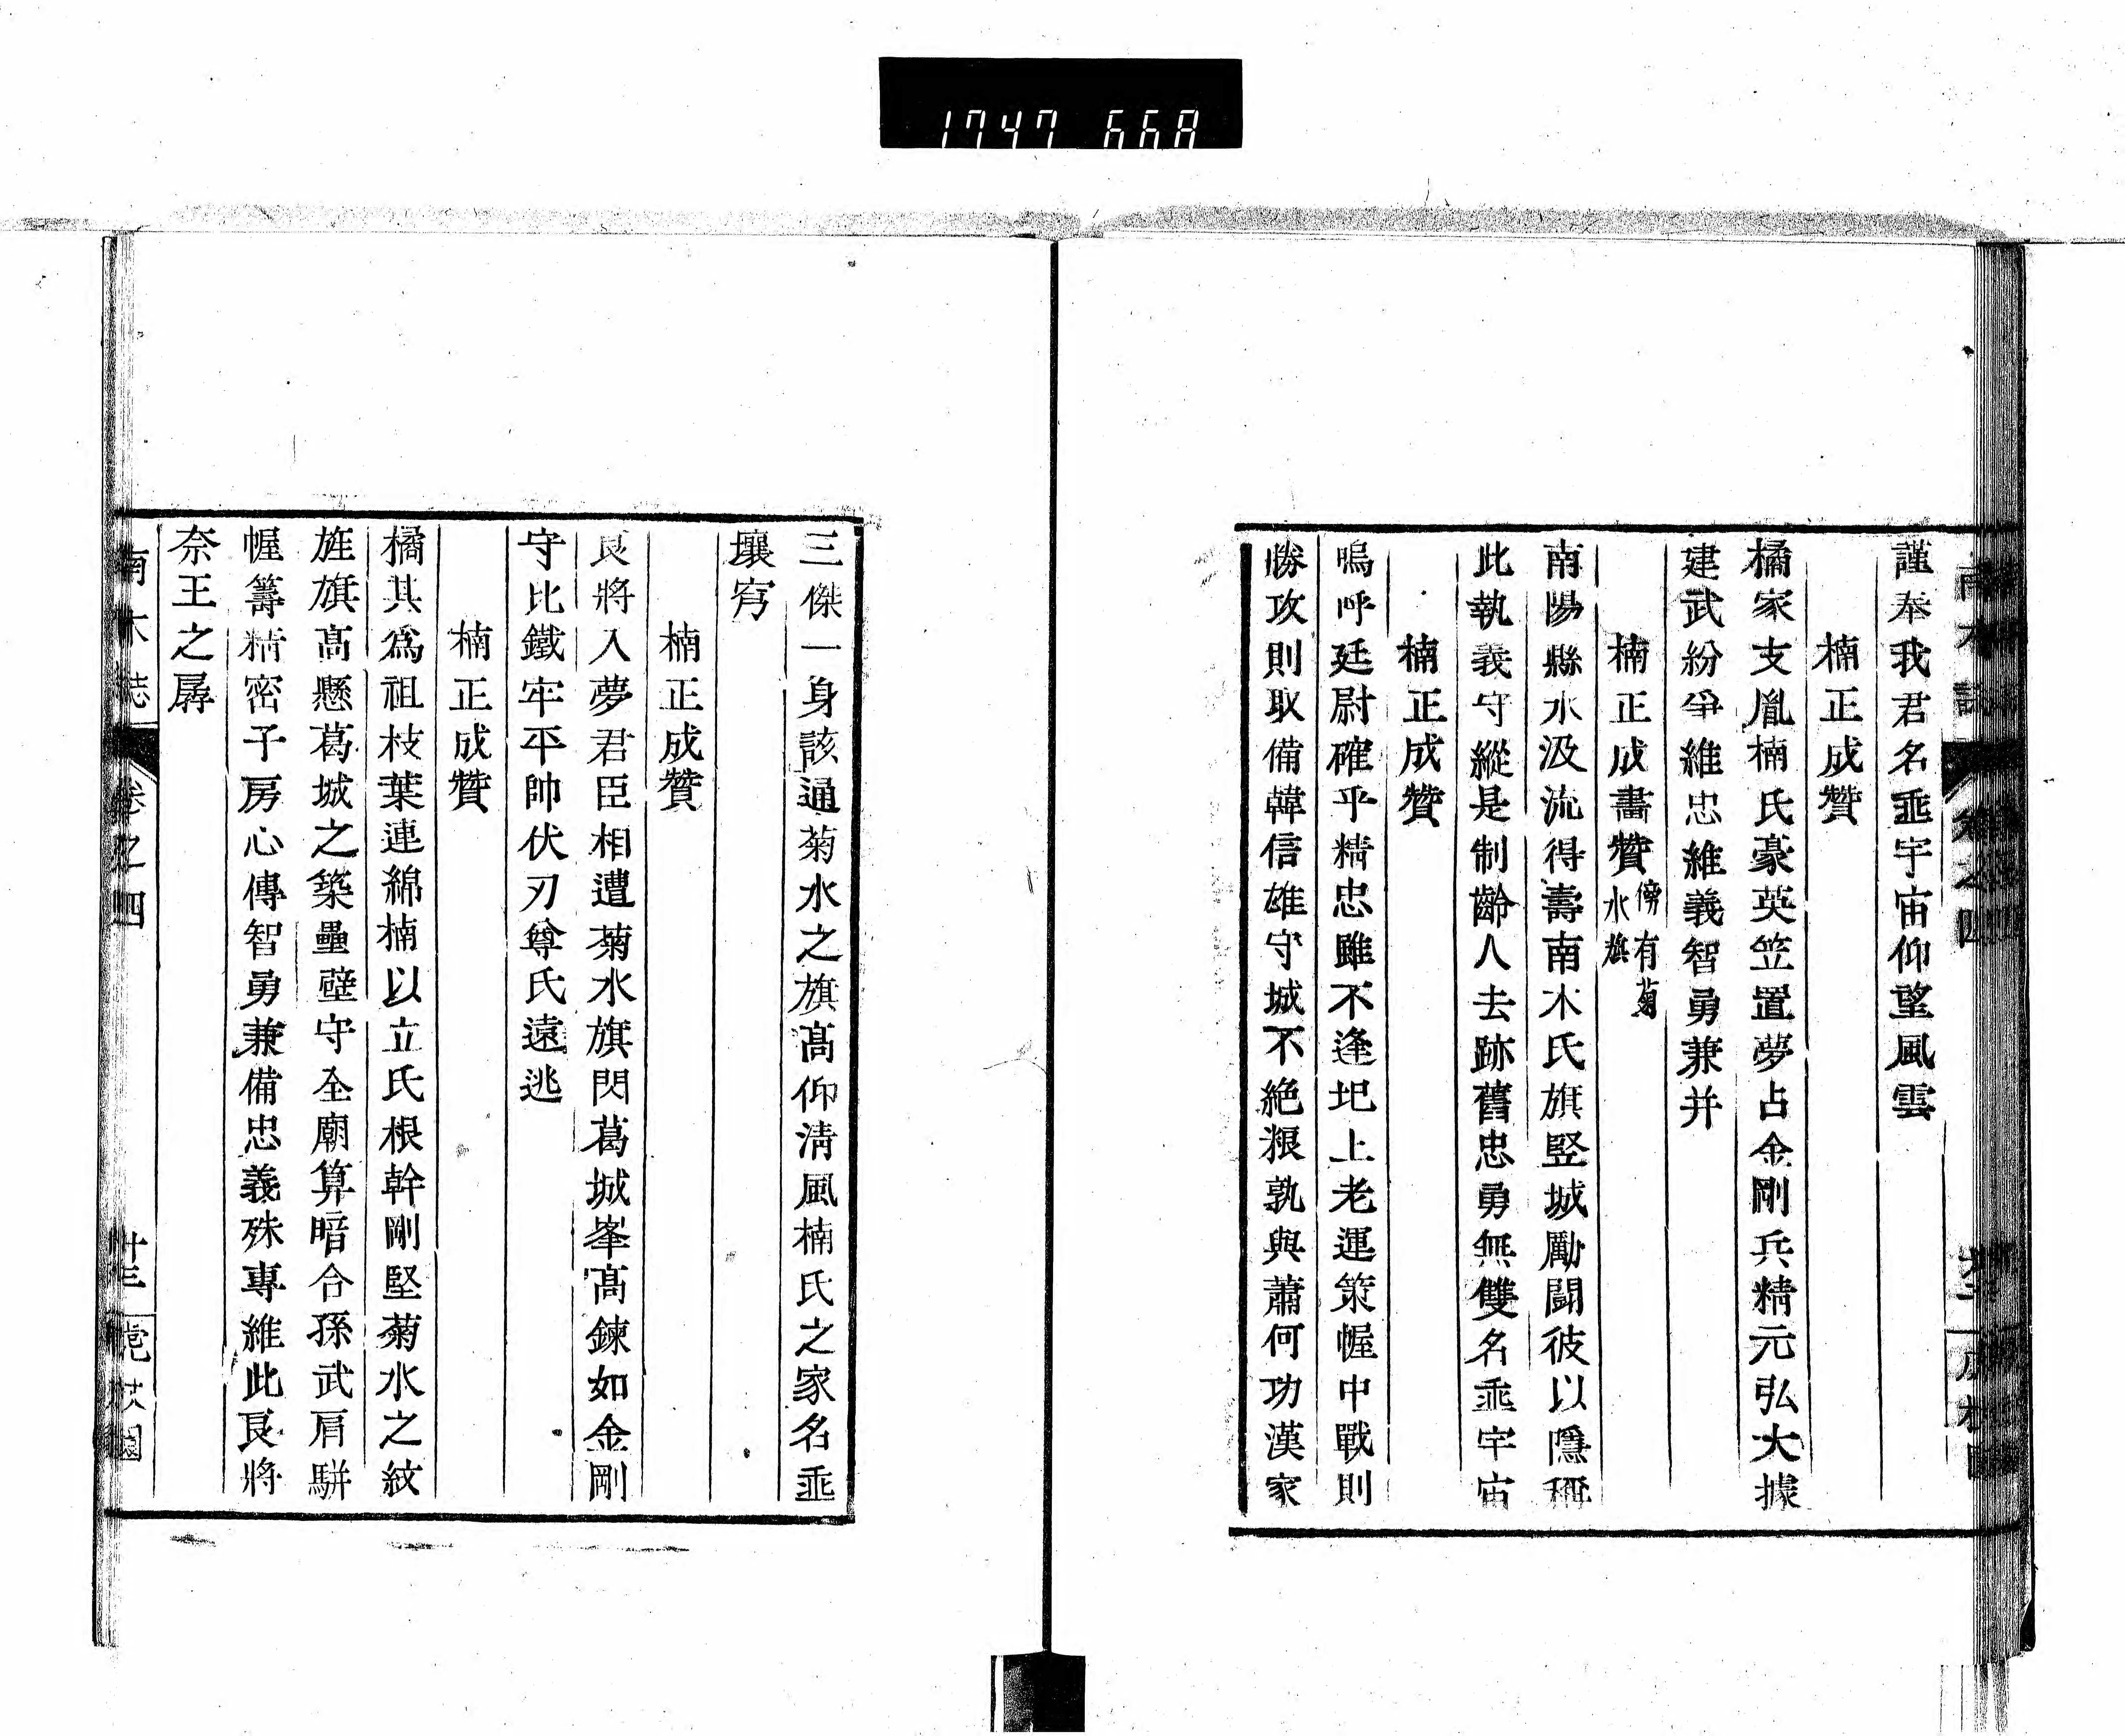 1747 668
謹奉我君名垂宇宙仰望風雲
楠正成贊
橘家支胤楠氏豪英笠置夢占金剛兵精元弘大據
建武紛爭維忠維義智勇兼并
楠正成畵贊傍有菊水旗
南陽縣水汲流得壽南木氏旗竪城勵鬪彼以隱稱
此執義守縱是制齡人去跡舊忠勇無雙名垂宇宙
楠正成贊
嗚呼廷尉確乎精忠雖不逢圯上老運策幄中戰則
勝攻則取備韓信雄守城不絶粮孰與蕭何功漢家
三傑一身該通菊水之旗髙仰淸風楠氏之家名垂
壤穹
楠正成贊
良將入夢君臣相遭菊水旗閃葛城峯髙鍊如金剛
守比鐵牢平帥伏刃尊氏遠逃
楠正成贊
橘其爲祖枝葉連綿楠以立氏根幹剛堅菊水之紋
旌旗髙懸葛城之築壘壁守全廟算暗合孫武肩駢
幄籌精密子房心傳智勇兼備忠義殊專維此良將
奈王之孱
南木誌 卷之四 廿三